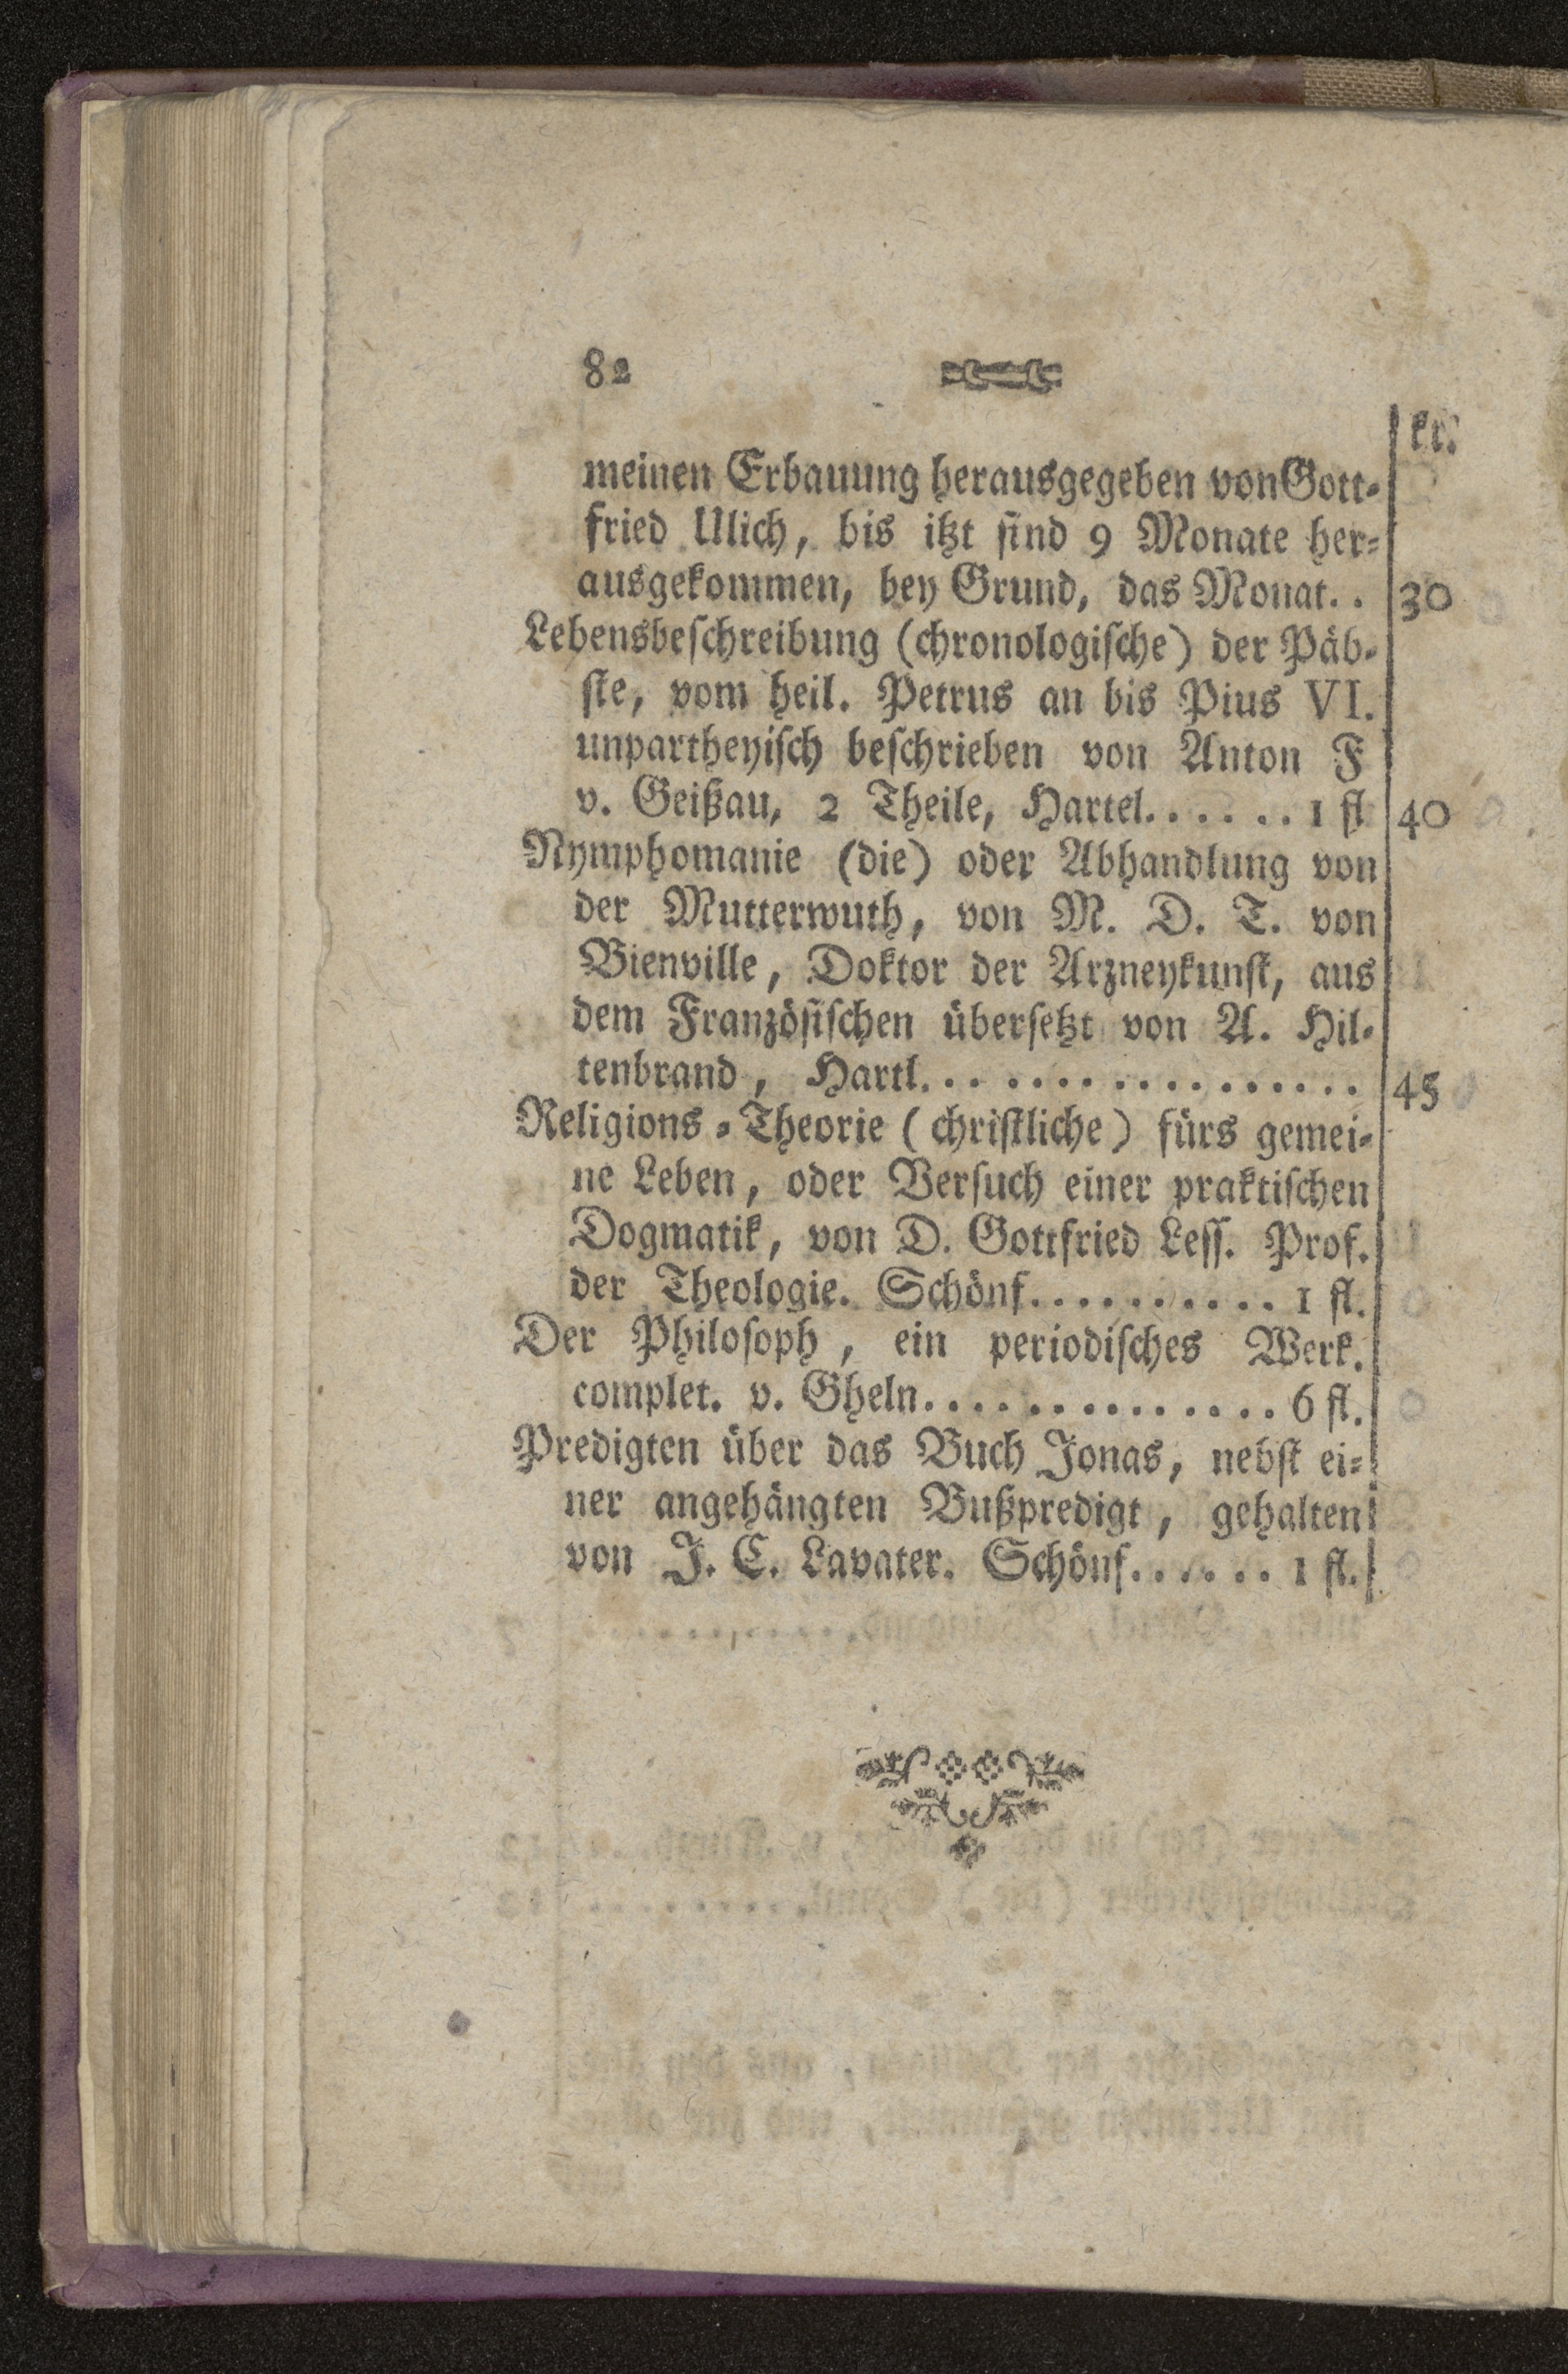 82
kr.
meinen Erbauung herausgegeben von Gott-
fried Ulich, bis itzt sind 9 Monate her-
ausgekommen, bey Grund, das Monat. . 30
Lebensbeschreibung (chronologische) der Päb-
ste, vom heil. Petrus an bis Pius VI.
unpartheyisch beschrieben von Anton F
v. Geißau, 2 Theile, Hartel. . . . . . 1 fl 40
Nymphomanie (die) oder Abhandlung von
der Mutterwuth, von M. D. T. von
Bienville, Doktor der Arzneykunst, aus
dem Französischen übersetzt von A. Hil-
tenbrand, Hartl. . . . . . . . . . . . . . . . . 45
Religions-Theorie (christliche) fürs gemei-
ne Leben, oder Versuch einer praktischen
Dogmatik, von D. Gottfried Less. Prof.
der Theologie. Schönf. . . . . . . . . . 1 fl.
Der Philosoph, ein periodisches Werk.
complet. v. Gheln. . . . . . . . . . . . . . 6 fl.
Predigten über das Buch Jonas, nebst ei-
ner angehängten Bußpredigt, gehalten
von J. C. Lavater. Schönf. . . . . . 1 fl.